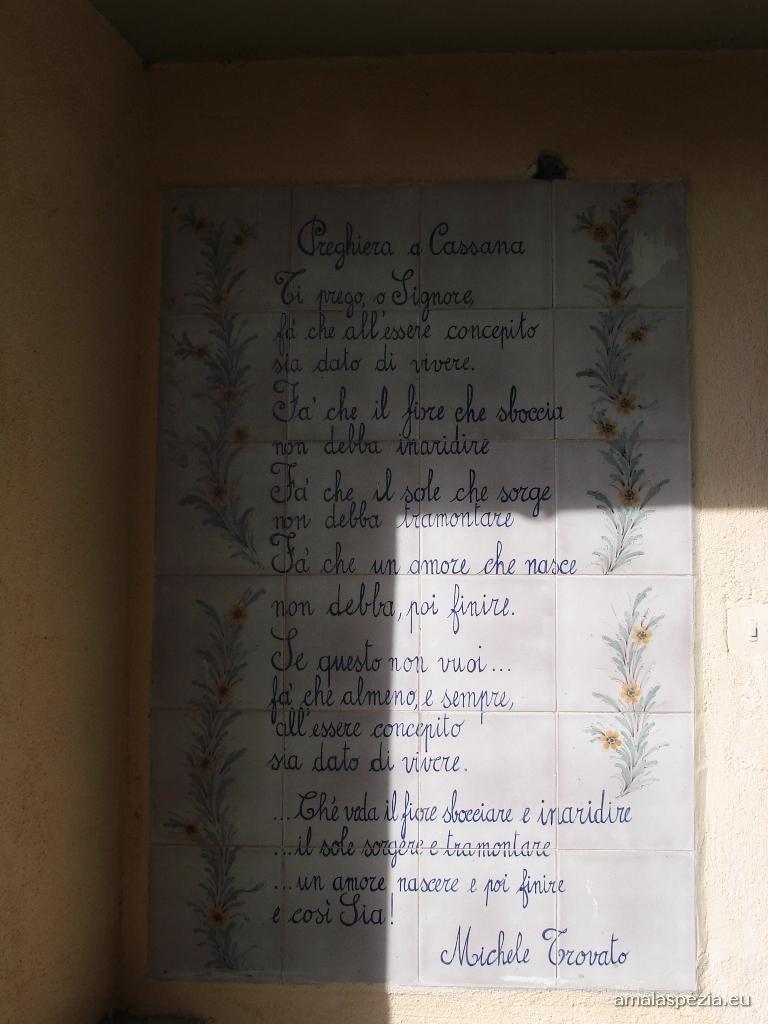 Preghiera a Cassana
Ti prego, o Signore,
fà che all'essere concepito
sia dato di vivere.
Fa' che il fiore che sboccia
non debba inaridire
Fa' che il sole che sorge
non debba tramontare
Fa' che un amore che nasce
non debba, poi finire.
Se questo non vuoi...
fa' che almeno, e sempre,
all'essere concepito
sia dato di vivere.
...Ché veda il fiore sbocciare e inaridire
...il sole sorgere e tramontare
...un amore nascere e poi finire
e così Sia!
Michele Trovato
amalaspezia.eu